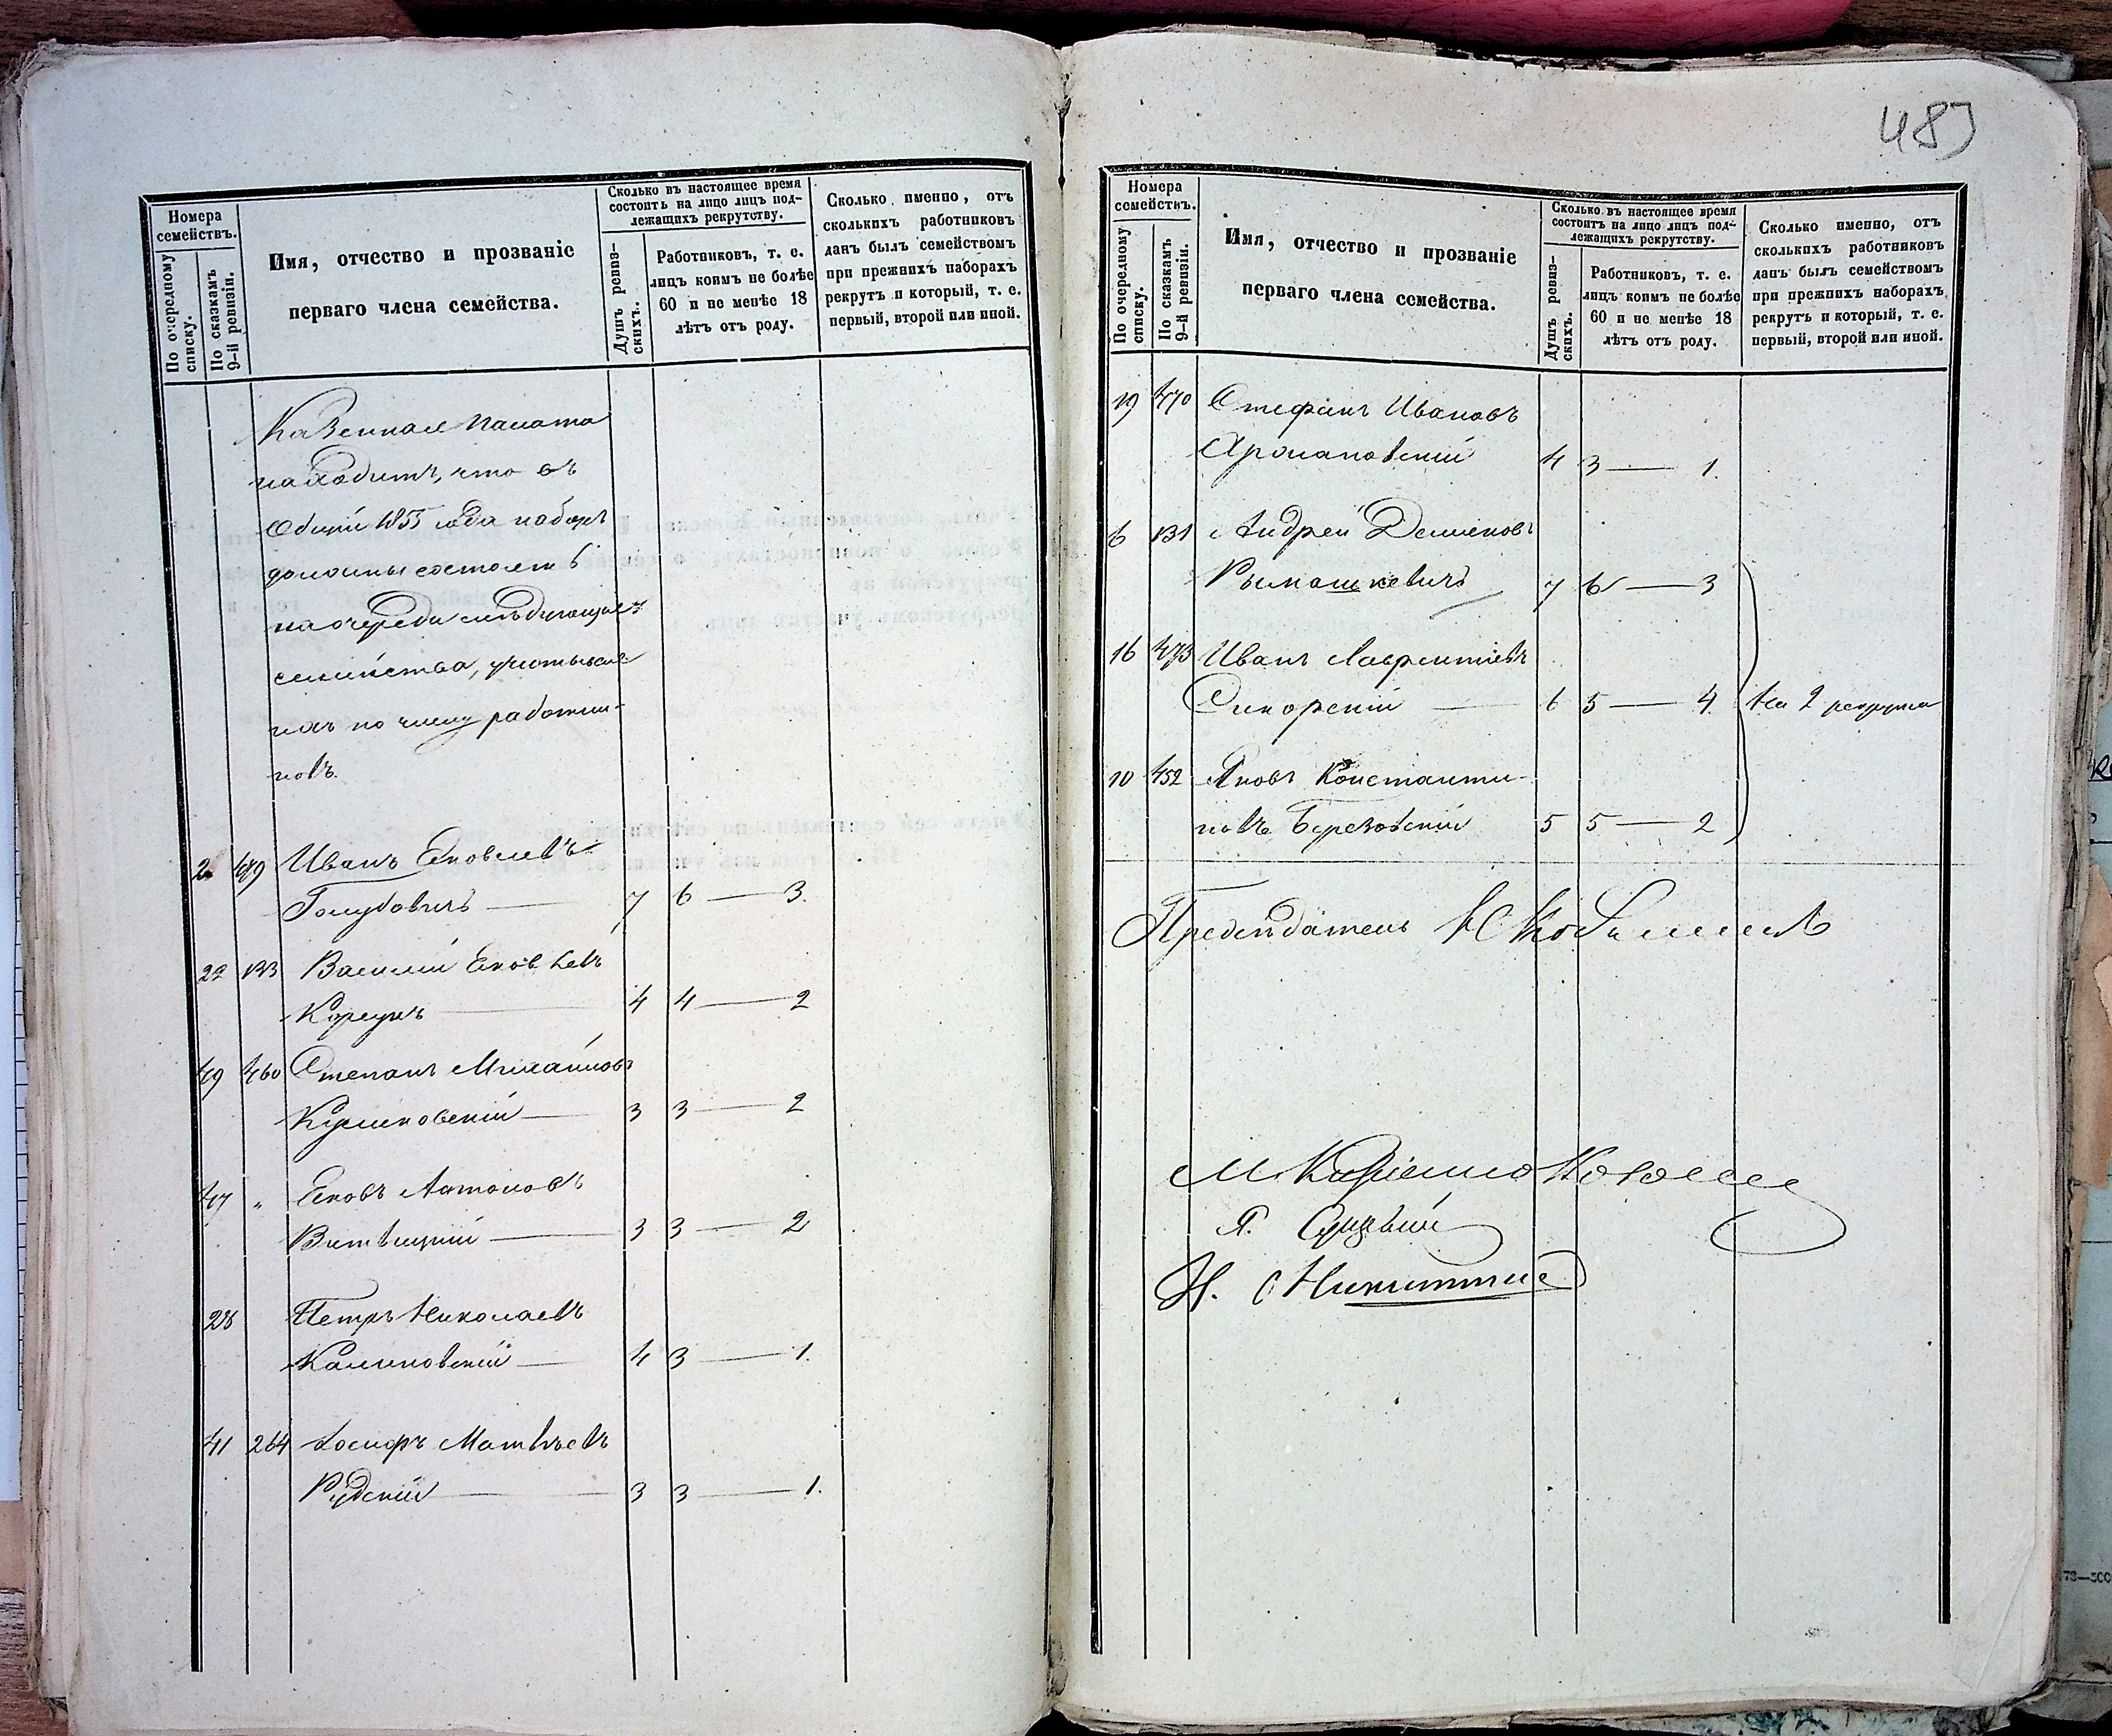 Номера семействъ.
По очередному списку.
По сказкамъ 9-й ревизіи.
Имя, отчество и прозваніе
перваго члена семейства.
Сколько въ настоящее время
состоитъ на лицо лицъ под-
лежащихъ рекрутству.
Душъ ревиз-
скихъ.
Работниковъ, т. е.
лицъ коимъ не болѣе
60 и не менѣе 18
лѣтъ отъ роду.
Сколько именно, отъ
сколькихъ работниковъ
данъ былъ семействомъ
при прежнихъ наборахъ
рекрутъ и который, т. е.
первый, второй или иной.
Казенная Палата
находитъ, что въ
общій 1855 года наборъ
должны состоять
на очереди слѣдующія
семейства, учитывая
ихъ по числу работни-
ковъ.
2 489 Иванъ Яковлевъ
Голубовичъ 7 6 — 3.
22 133 Василій Яковлевъ
Корсунъ 4 4 — 2
49 460 Степанъ Михайловъ
3 3 — 2
47 „ Яковъ Антоновъ
Витвицкій 3 3 — 2
28 Петръ Николаевъ
Калиновскій 4 3 — 1.
41 264 Іосифъ Матвѣевъ
Рудскій 3 3 — 1.
489
Номера
семействъ.
По очередному
списку.
По сказкамъ
9-й ревизіи.
Имя, отчество и прозваніе
перваго члена семейства.
Сколько въ настоящее время
состоитъ на лицо лицъ под-
лежащихъ рекрутству.
Душъ ревиз-
скихъ.
Работниковъ, т. е.
лицъ коимъ не болѣе
60 и не менѣе 18
лѣтъ отъ роду.
Сколько именно, отъ
сколькихъ работниковъ
данъ былъ семействомъ
при прежнихъ наборахъ
рекрутъ и который, т. е.
первый, второй или иной.
19 470 Стефанъ Ивановъ
4 3 — 1.
6 131 Андрей Деменовъ
Рымашкевичъ 7 6 — 3
16 473 Иванъ Лаврентіевъ
Сикорскій 6 5 — 4. На 2 рекрута
10 452 Яковъ Константи-
новъ Березовскій 5 5 — 2
Предсѣдатель
М.
Я.
Н. Никитинъ